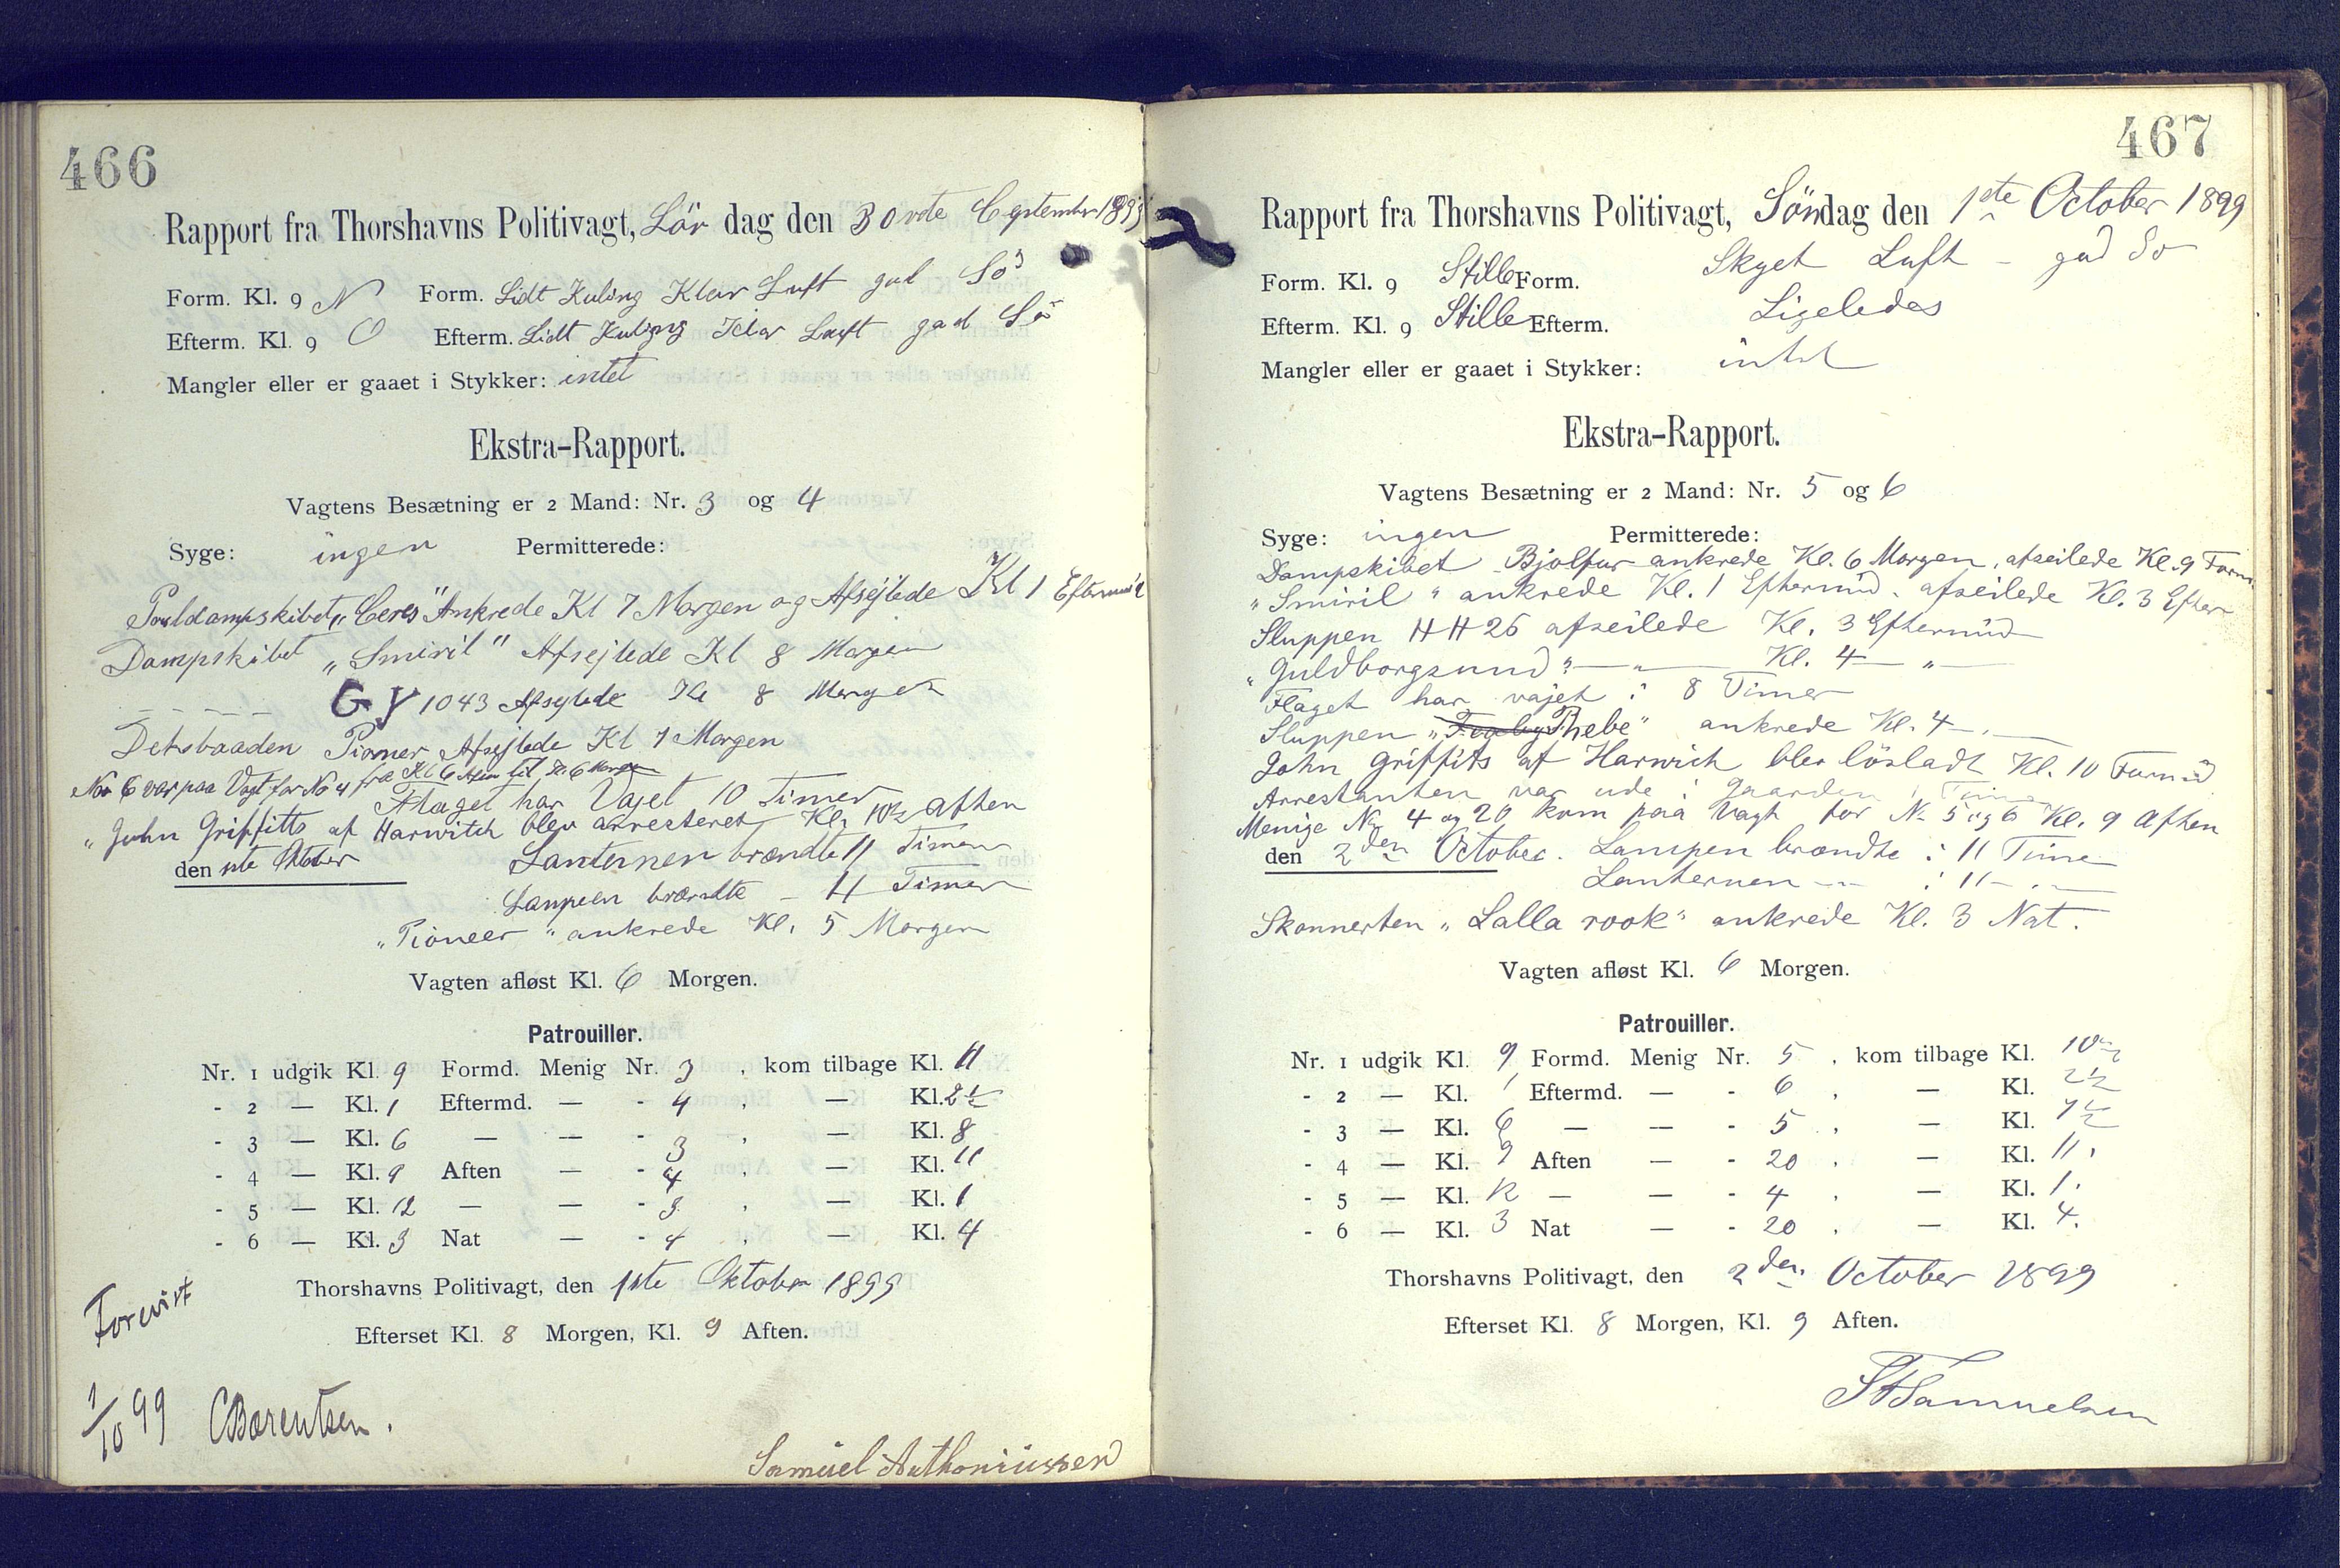 466
Rapport fra Thorshavns Politivagt, Lör dag den 30 vte September 1899
Form. Kl. 9 N Form. Lidt Kuling Klar Luft god Sö
Efterm. Kl. 9 O Efterm. Lidt Kuling Klar Luft god Sö
Mangler eller er gaaet i Stykker: intet
Ekstra-Rapport.
Vagtens Besætning er 2 Mand: Nr. 3 og 4
Syge: ingen Permitterede:
„Ceres" Ankrede Kl 7 Morgen og Afsejlede Kl 1 Eftermid
Dampskibet „Smiril" Afsejlede Kl 8 Morgen
GY 1043 Afsejlede Kl 8 Morgen
Pioner Afsejlede Kl 7 Morgen
No 6 var paa Vagt for No 4 fra Kl 6 Aften til Kl. 6 Morgen
Flaget har Vajet 10 Timer
„John Griffitts af Harwitch blev arresteret Kl. 10½ Aften
den 1ste Oktober Lanternen brændte 11 Timer
Lampen brændte – 11 Timer
„Pioneer" ankrede Kl. 5 Morgen
Vagten afløst Kl. 6 Morgen.
Patrouiller.
Nr. 1 udgik Kl. 9 Formd. Menig Nr. 3 , kom tilbage Kl. 11
- 2 — Kl. 1 Eftermd. — - 4 , — Kl. 2½
- 3 — Kl. 6 — — - 3 , — Kl. 8
- 4 — Kl. 9 Aften — - 4 , — Kl. 11
- 5 — Kl. 12 — — - 3 , — Kl. 1
- 6 — Kl. 3 Nat — - 4 , — Kl. 4
Thorshavns Politivagt, den 1ste Oktober 1899
Efterset Kl. 8 Morgen, Kl. 9 Aften.
Forevist
1/10 99 CBærentsen.
Samuel Anthoniussen
467
Rapport fra Thorshavns Politivagt, Söndag den 1ste October 1899
Form. Kl. 9 Stille Form. Skyet Luft – god Sö
Efterm. Kl. 9 Stille Efterm. Ligeledes
Mangler eller er gaaet i Stykker: intet
Ekstra-Rapport.
Vagtens Besætning er 2 Mand: Nr. 5 og 6
Syge: ingen Permitterede:
Dampskibet Bjolfur ankrede Kl. 6 Morgen, afseilede Kl. 9 Form.
„Smiril" ankrede Kl. 1 Eftermid. afseilede Kl. 3 Efter
Sluppen HH26 afseilede Kl. 3 Eftermid
„Guldborgsund" — „ — Kl. 4 — „ —
Flaget har vajet i 8 Timer
Sluppen „Phebe" ankrede Kl. 4 — „ —
John Griffits af Harwich blev lösladt Kl. 10 Formd
Arrestanten var ude i Gaarden
Menige No 4 og 20 kom paa Vagt for No 5 og 6 Kl. 9 Aften
den 2den October. Lampen brændte i 11 Time
Lanternen — „ — i 11 — „ —
Skonnerten „Lalla rook" ankrede Kl. 3 Nat.
Vagten afløst Kl. 6 Morgen.
Patrouiller.
Nr. 1 udgik Kl. 9 Formd. Menig Nr. 5 , kom tilbage Kl. 10½
- 2 — Kl. 1 Eftermd. — - 6 , — Kl. 2½
- 3 — Kl. 6 — — - 5 , — Kl. 7½
- 4 — Kl. 9 Aften — - 20 , — Kl. 11.
- 5 — Kl. 12 — — - 4 , — Kl. 1.
- 6 — Kl. 3 Nat — - 20 , — Kl. 4.
Thorshavns Politivagt, den 2den October 1899
Efterset Kl. 8 Morgen, Kl. 9 Aften.
Samuelsen